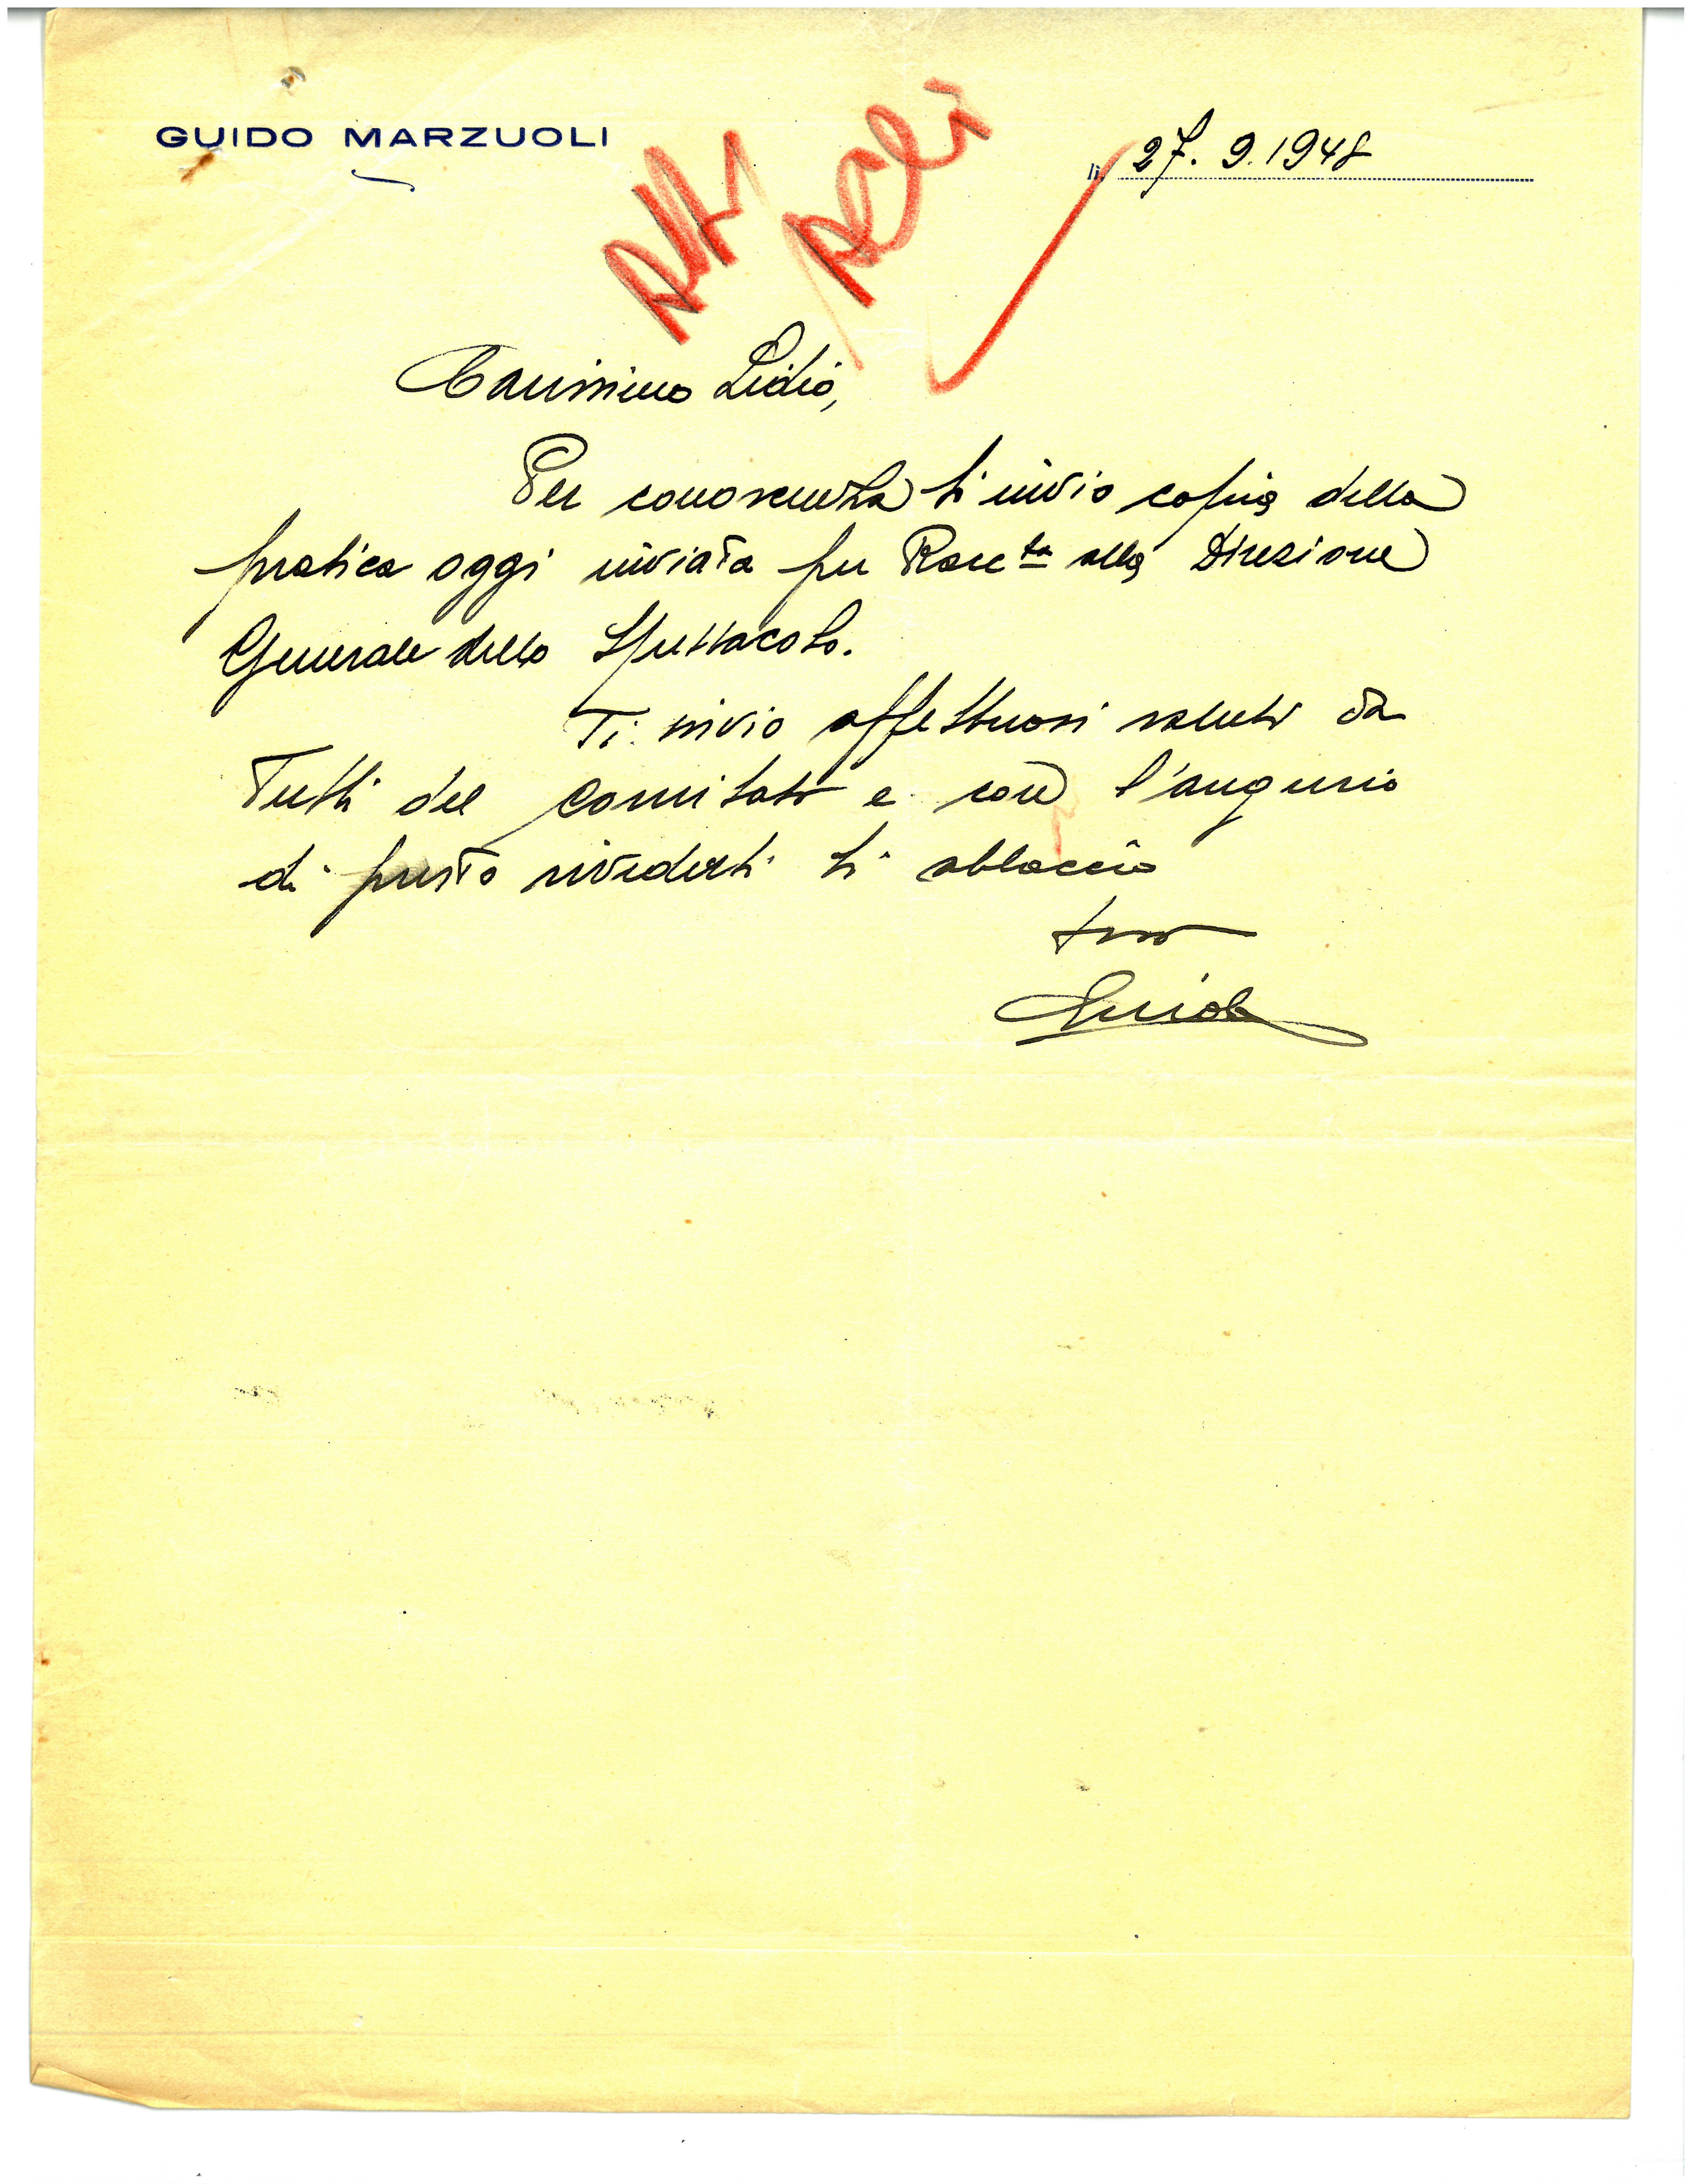 GUIDO MARZUOLI
li, 27. 9. 1948
Atti
Carissimo Lidio,
Per conoscenza ti invio copia della
pratica oggi inviata per Racc.ta alla Direzione
Generale dello Spettacolo.
Ti invio affettuosi saluti da
Tutti del Comitato e con l'augurio
di presto rivederti ti abbraccio
tuo
Guido